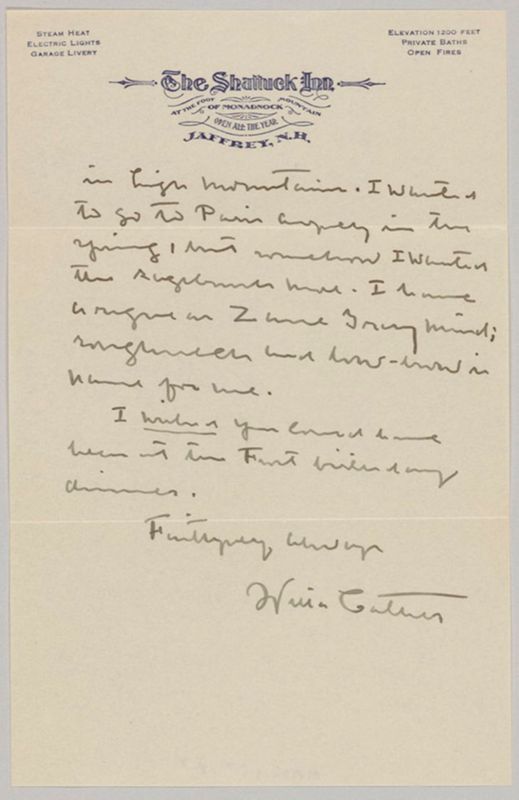 STEAM HEAT
ELECTRIC LIGHTS
GARAGE LIVERY
ELEVATION 1200 FEET
PRIVATE BATHS
OPEN FIRES
The Shattuck Inn
AT THE FOOT OF MONADNOCK MOUNTAIN
OPEN ALL THE YEAR
JAFFREY, N.H.
in high mountains. I wanted
to go to Paris in the
spring, but somehow I wanted
the sagebrush more. I have
a Zane Grey mind;
roughneck and low-brow is
name for me.
I wished you could have
been at the Frost birthday
dinner.
Faithfully always
Willa Cather